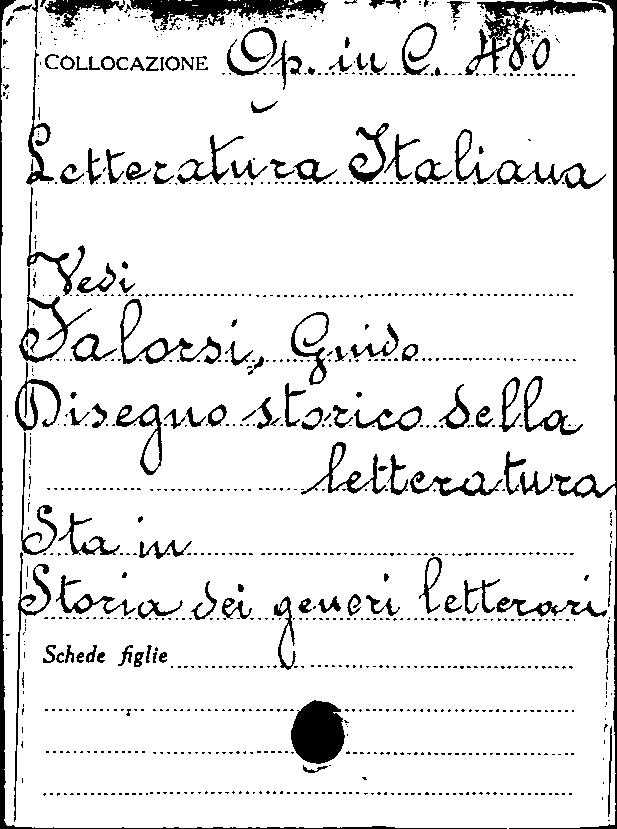 COLLOCAZIONE Op. in C. 480
Letteratura Italiana
Vedi
Falorsi, Guido
Disegno storico della
letteratura
Sta in
Storia dei generi letterari
Schede figlie